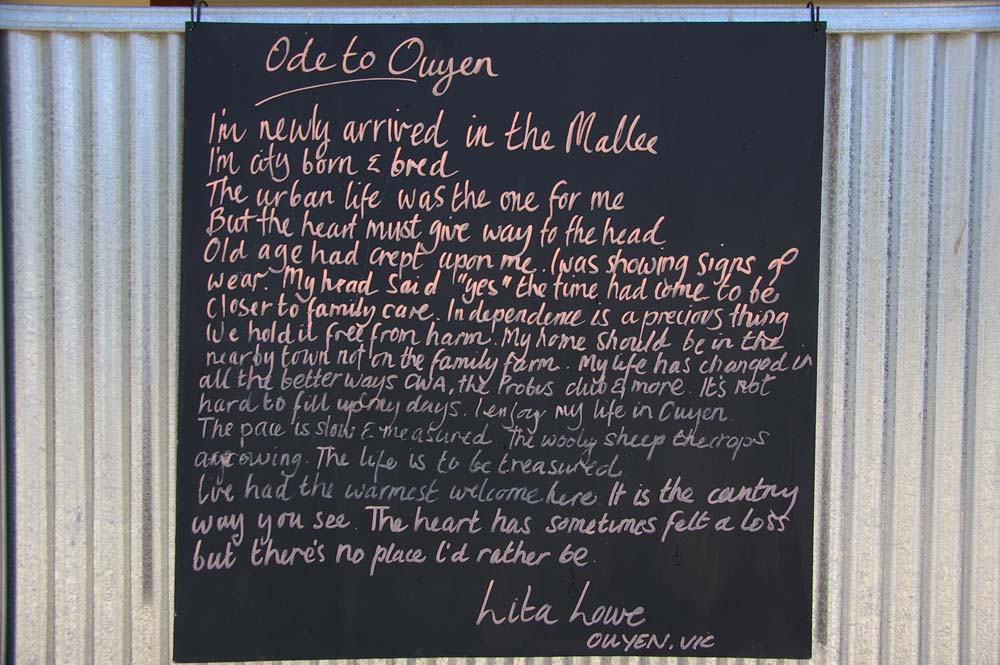 Ode to Ouyen
I'm newly arrived in the Mallee
I'm city born & bred
The urban life was the one for me
But the heart must give way to the head
Old age had crept upon me. I was showing signs of
wear. My head said "yes" the time had come to be
closer to family care. Independence is a precious thing
We hold it free from harm. My home should be in the
nearby town not on the family farm. My life has changed in
all the better ways CWA, the Probus club & more. It's not
hard to fill up my days. I enjoy my life in Ouyen.
The pace is slow & measured. The wooly sheep the crops
agrowing. The life is to be treasured
I've had the warmest welcome here. It is the country
way you see. The heart has sometimes felt a loss
but there's no place I'd rather be.
Lita Lowe
OUYEN. VIC